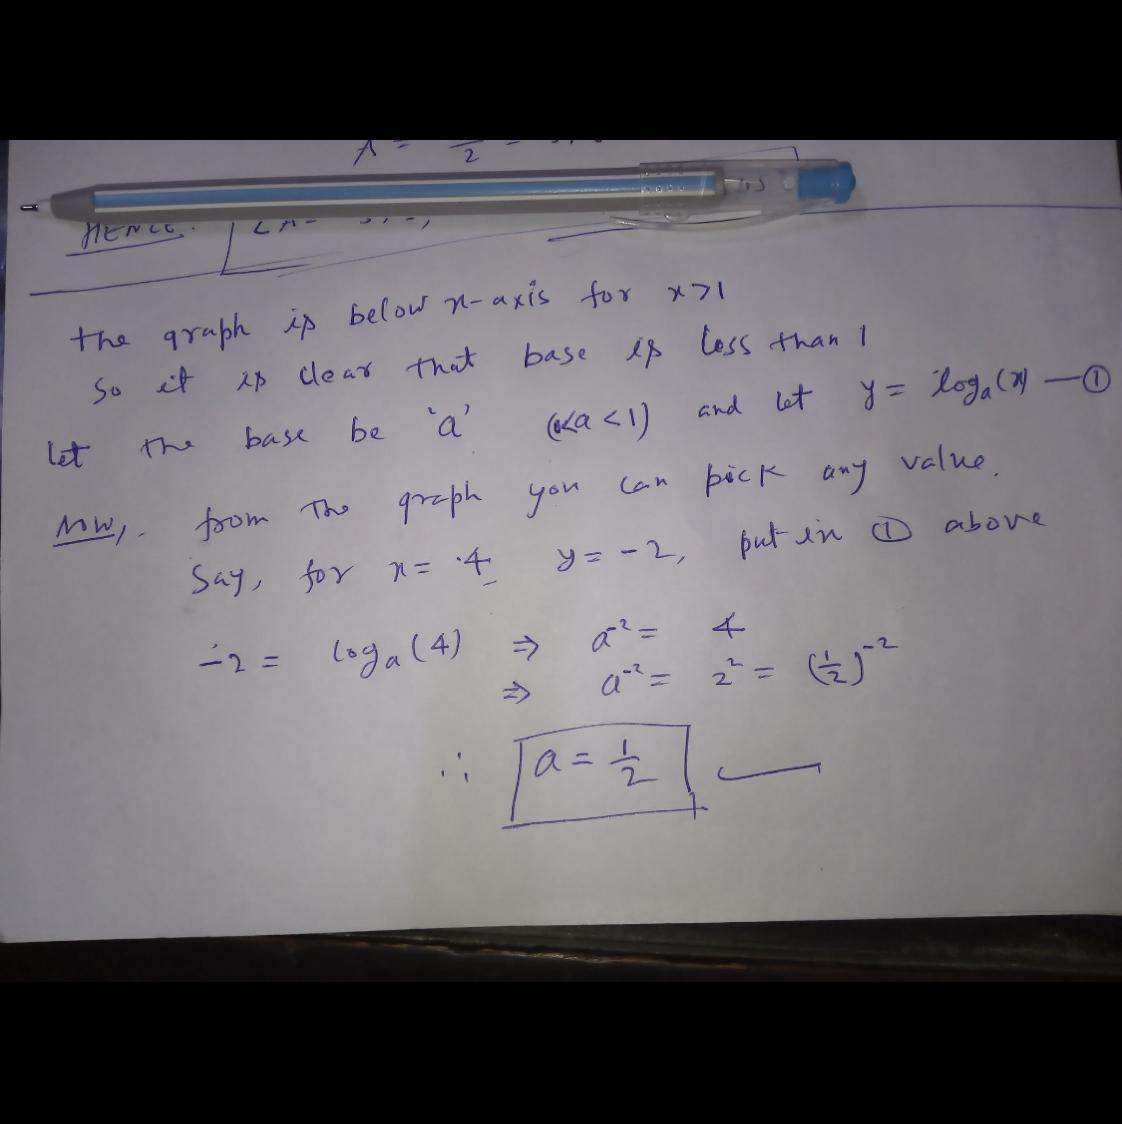 A = — 2
HENCE.
the graph is below x-axis for x>1
So it is clear that base is less than 1
let the base be 'a' (0<a<1) and let y = log_a(x) — ①
Now, from the graph you can pick any value.
Say, for x = 4 y = -2, put in ① above
-2 = log_a(4) ⇒ a^-2 = 4
⇒ a^-2 = 2^2 = (1/2)^-2
∴ a = 1/2